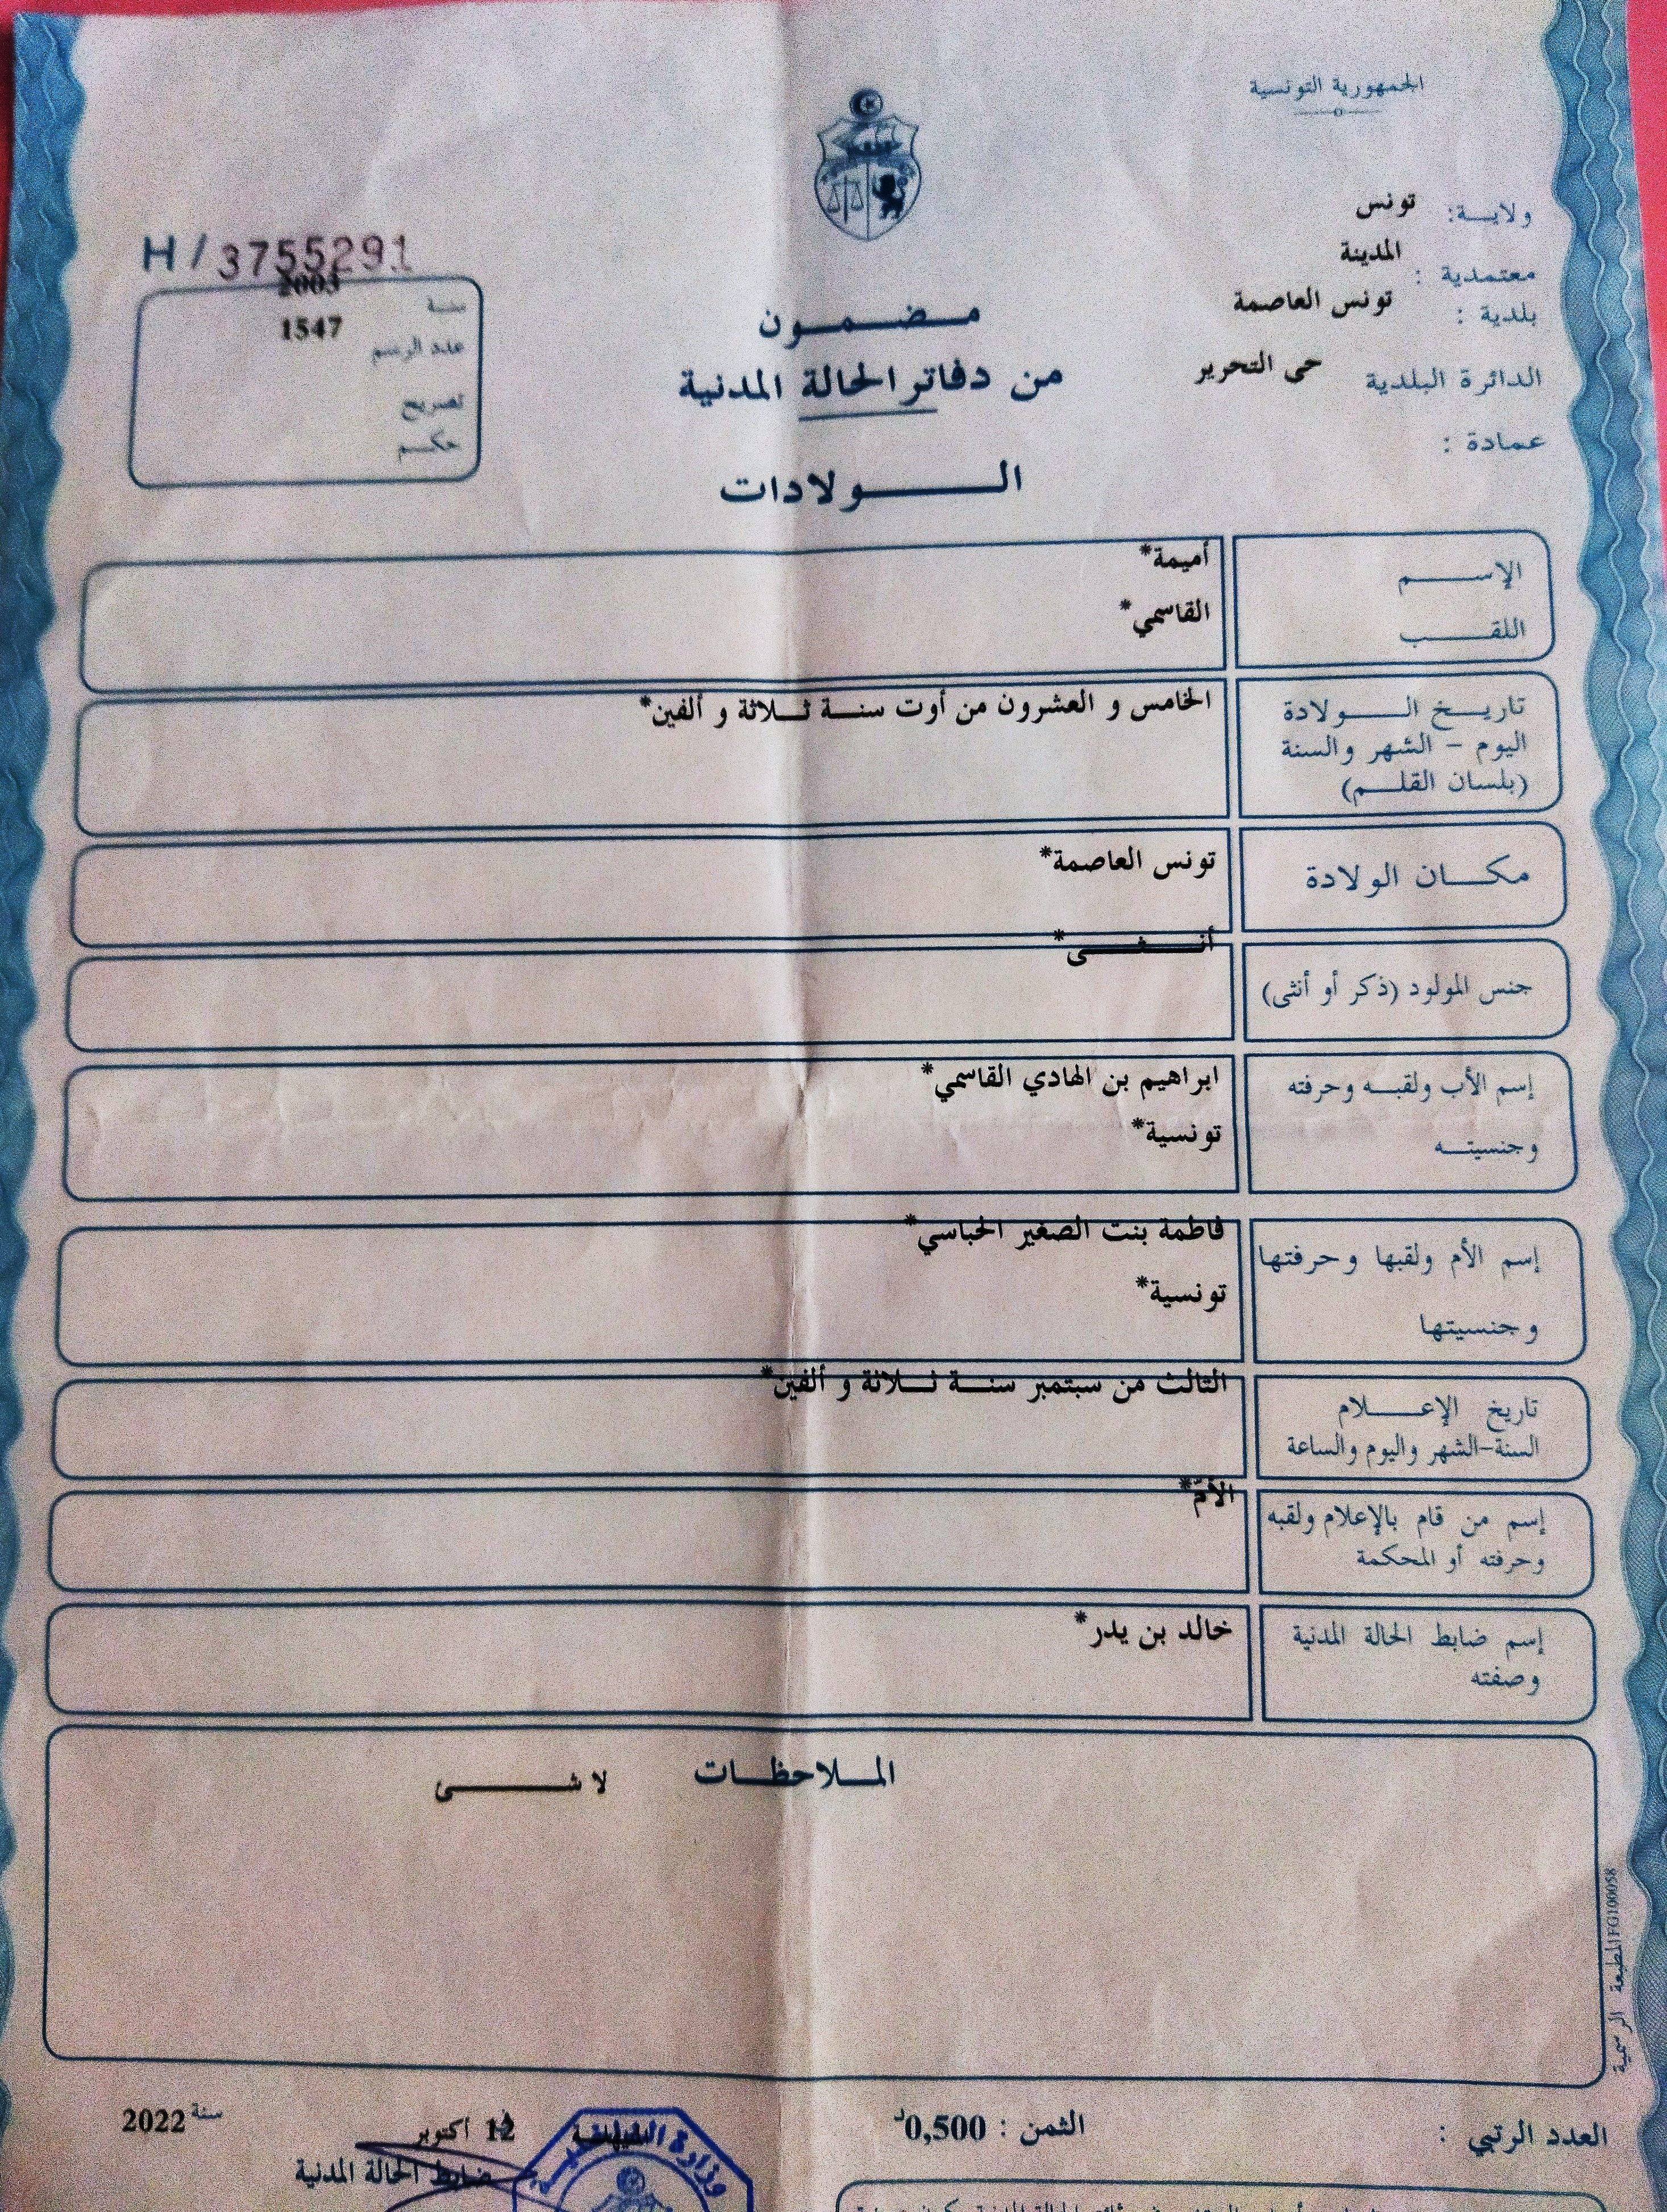 الجمهورية التونسية
ولايــة: تونس
معتمدية : المدينة
بلدية : تونس العاصمة
الدائرة البلدية حى التحرير
عمادة :
H/3755291
سنة 2003
عدد الرسم 1547
تصريح
حكم
مضمون
من دفاتر الحالة المدنية
الولادات
الإسم أميمة*
اللقب القاسمي*
تاريخ الولادة الخامس و العشرون من أوت سنة ثلاثة و ألفين*
اليوم - الشهر والسنة
(بلسان القلم)
مكان الولادة تونس العاصمة*
جنس المولود (ذكر أو أنثى) أنثى*
إسم الأب ولقبه وحرفته ابراهيم بن الهادي القاسمي*
وجنسيته تونسية*
إسم الأم ولقبها وحرفتها فاطمة بنت الصغير الحباسي*
وجنسيتها تونسية*
تاريخ الإعلام الثالث من سبتمبر سنة ثلاثة و ألفين*
السنة-الشهر واليوم والساعة
إسم من قام بالإعلام ولقبه الأمّ*
وحرفته أو المحكمة
إسم ضابط الحالة المدنية خالد بن يدر*
وصفته
الملاحظات لا شى
المطبعة الرسمية FG100058
العدد الرتبي :
الثمن : 0,500د
12 أكتوبر سنة 2022
ضابط الحالة المدنية
وزارة